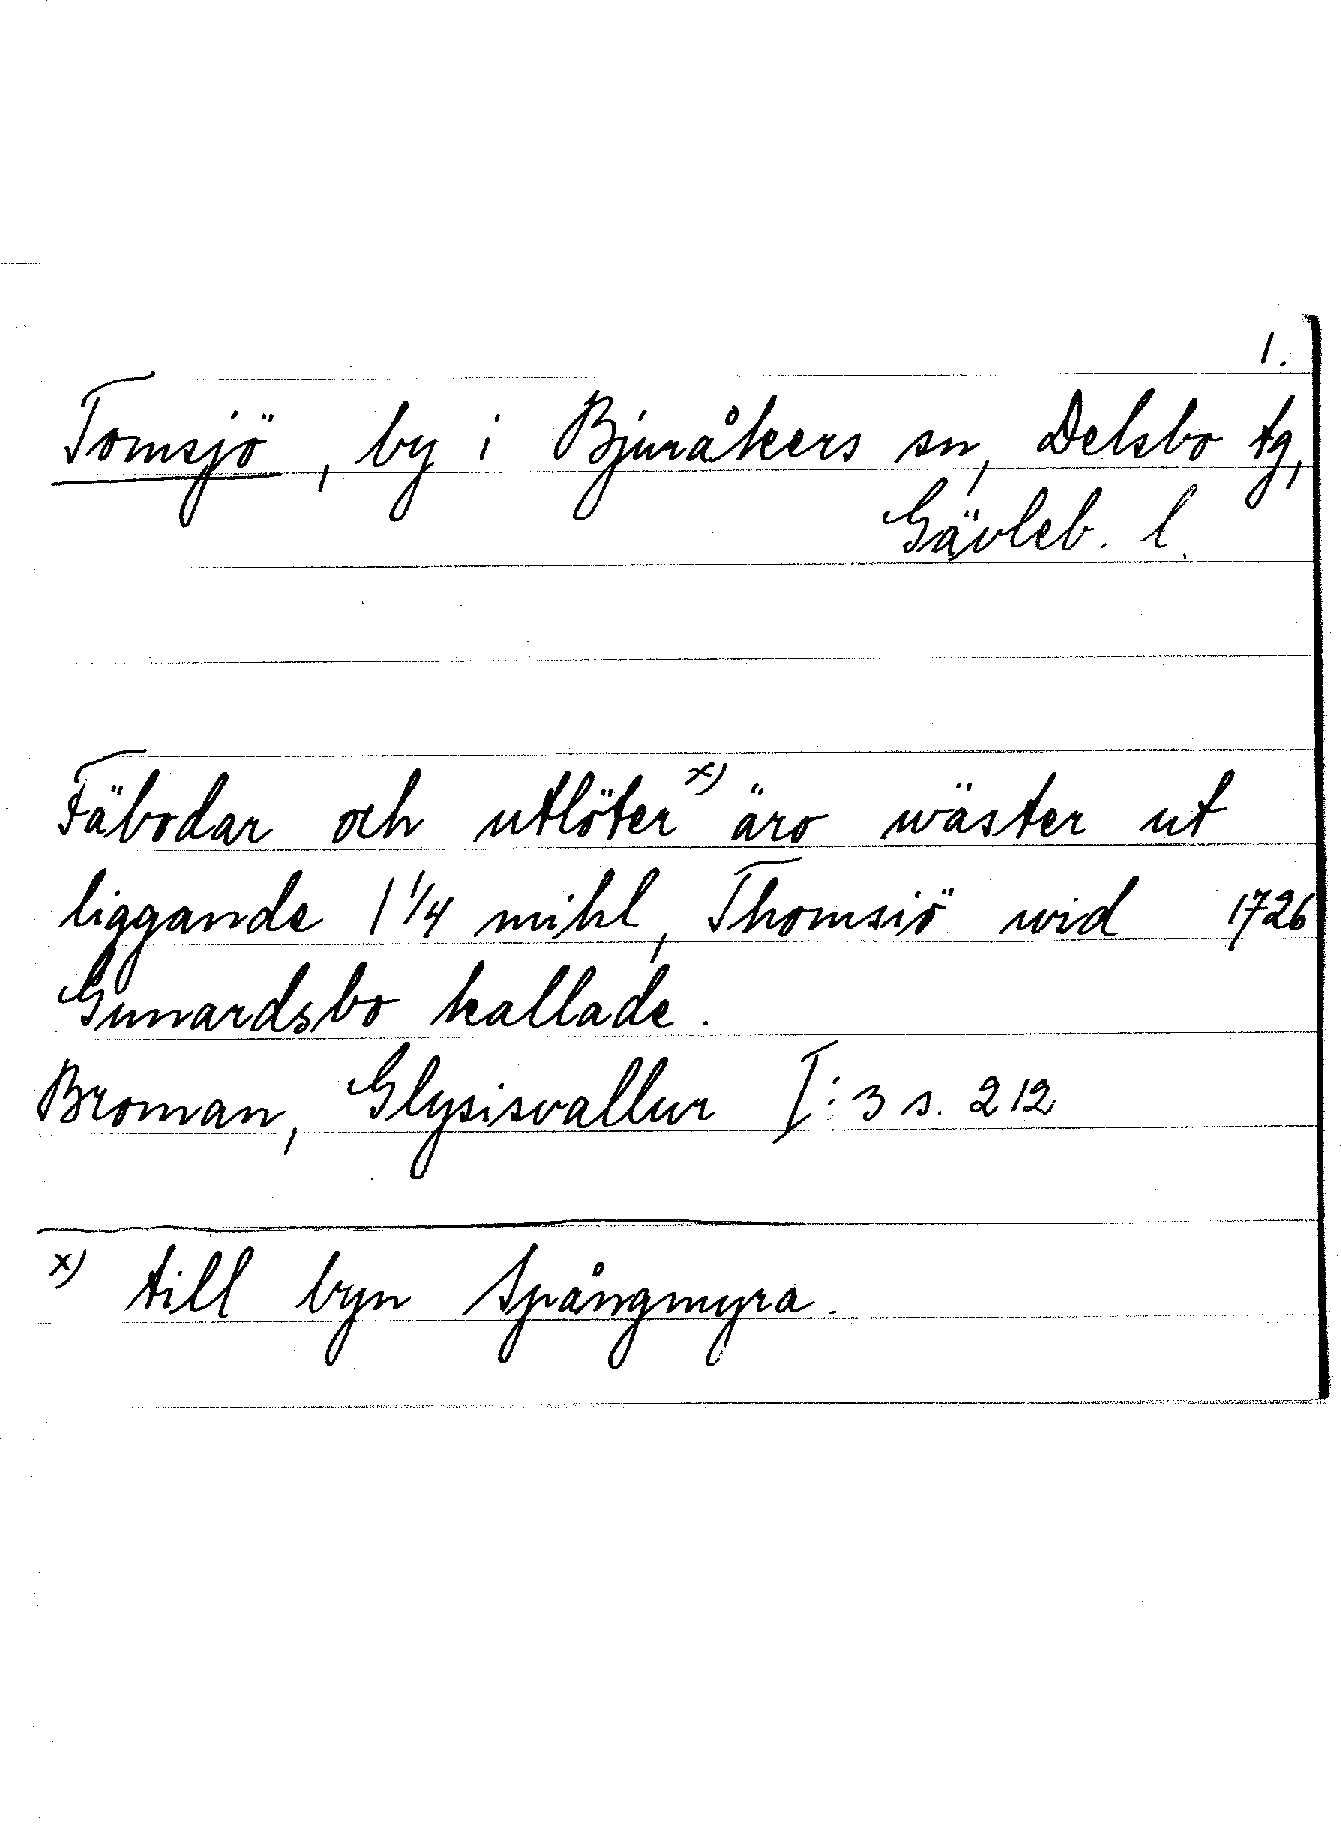 1.
Tomsjö, by i Bjuråkers sn, Delsbo tg,
Gävleb. l.
Fäbodar och utlöter x) äro wäster ut
liggande 1 1/4 mihl, Thomsiö wid 1726
Gunardsbo kallade.
Broman, Glysisvallur I:3 s. 212
x) till byn Spångmyra.